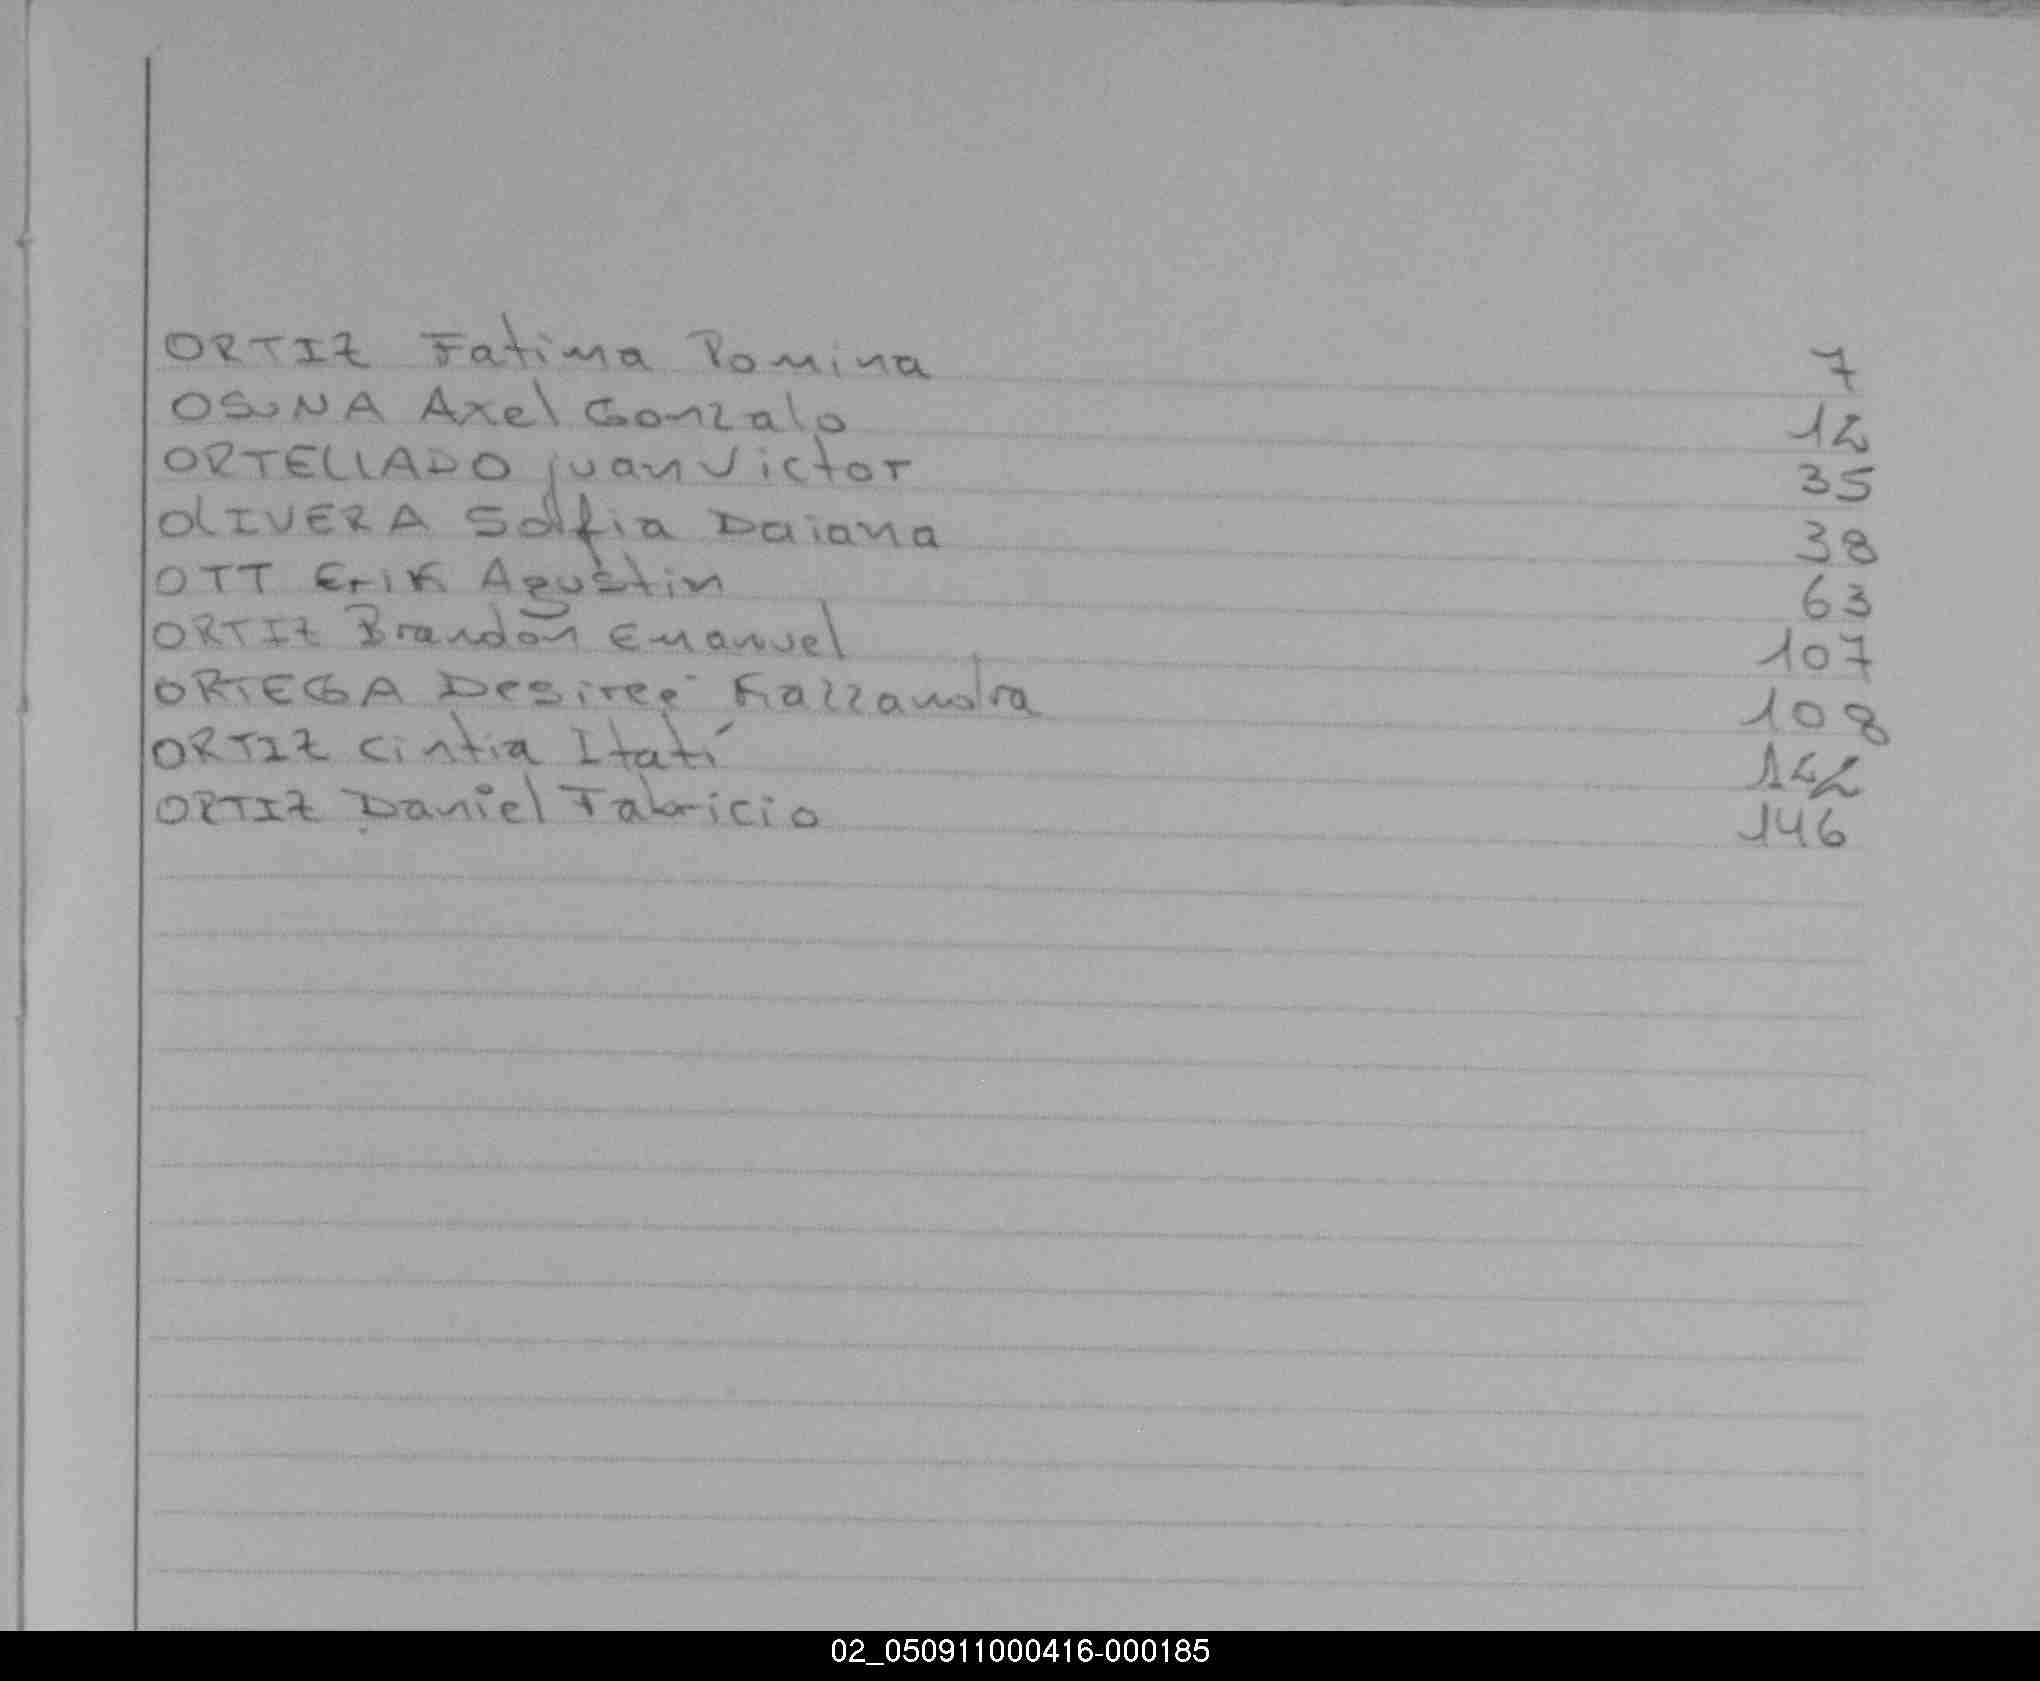 ORTIZ Fatima Romina 7
OSUNA Axel Gonzalo 12
ORTELLADO juan Victor 35
OLIVERA Sofia Daiana 38
OTT Erik Agustin 63
ORTIZ Brandon Emanuel 107
ORTEGA Desireé Kazzandra 108
ORTIZ Cintia Itatí
ORTIZ Daniel Fabricio 146
02_050911000416-000185